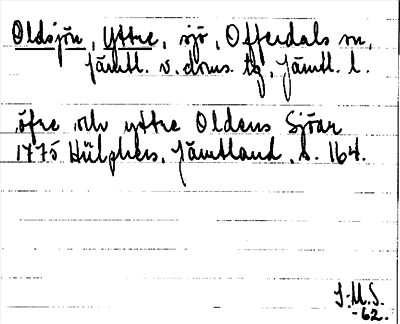 Oldsjön, Yttre, sjö, Offerdals sn,
Jämtl. v. doms. tg, Jämtl. l.
öfre och yttre Oldens Sjöar
1775 Hülphers, Jämtland, s. 164.
S:M.S.
-62.